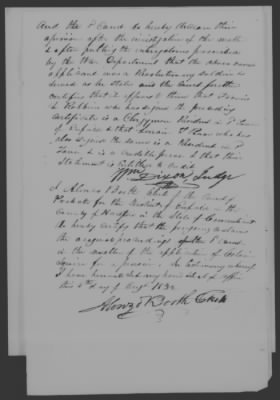 And the s^d Court do hereby declare their
opinion after the investigation of the matter
& after putting the interrogatories prescribed
by the War Department that the above named
applicant was a Revolutionary soldier &
served as he states and the Court further
certifies that it appears to them that
Robbins who has signed the preceding
certificate is a Clergyman Resident in s^d Town
of Enfield & that
also signed the same is a Resident in s^d
Town & is a credible person & that their
Statement is entitled to credit
Dixon Judge
I Alonzo Booth Clerk of the Court of
Probate for the District of Enfield in the
County of Hartford in the State of Connecticut
do hereby certify that the foregoing contains
the original proceedings of the s^d Court
in the matter of the application of
for a pension. In testimony whereof
I have hereunto set my hand & seal of office
this day of Aug^t 1832
Alonzo Booth Clerk